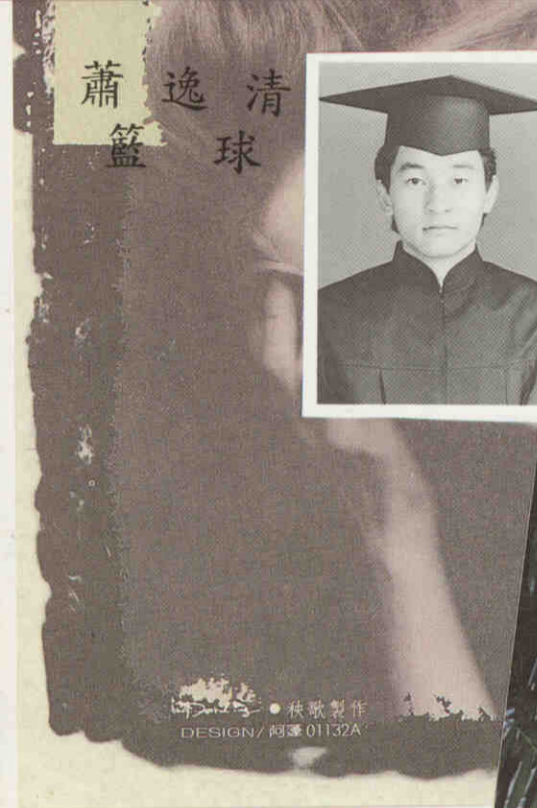 蕭逸清
籃球
秧歌製作
DESIGN/阿潘 01132A